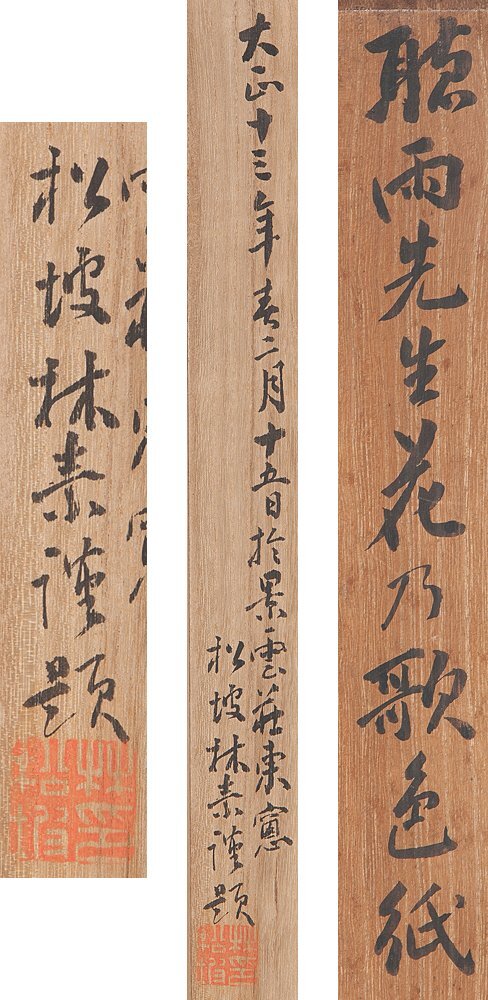 聴雨先生花乃歌色紙
大正十三年春二月十五日於景雲荘東窓
松坡林素謹題
松坡林素謹題